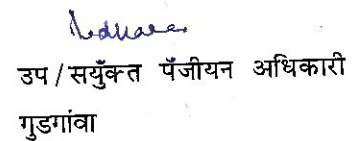 उप/सयुँक्त पँजीयन अधिकारी
गुडगांवा